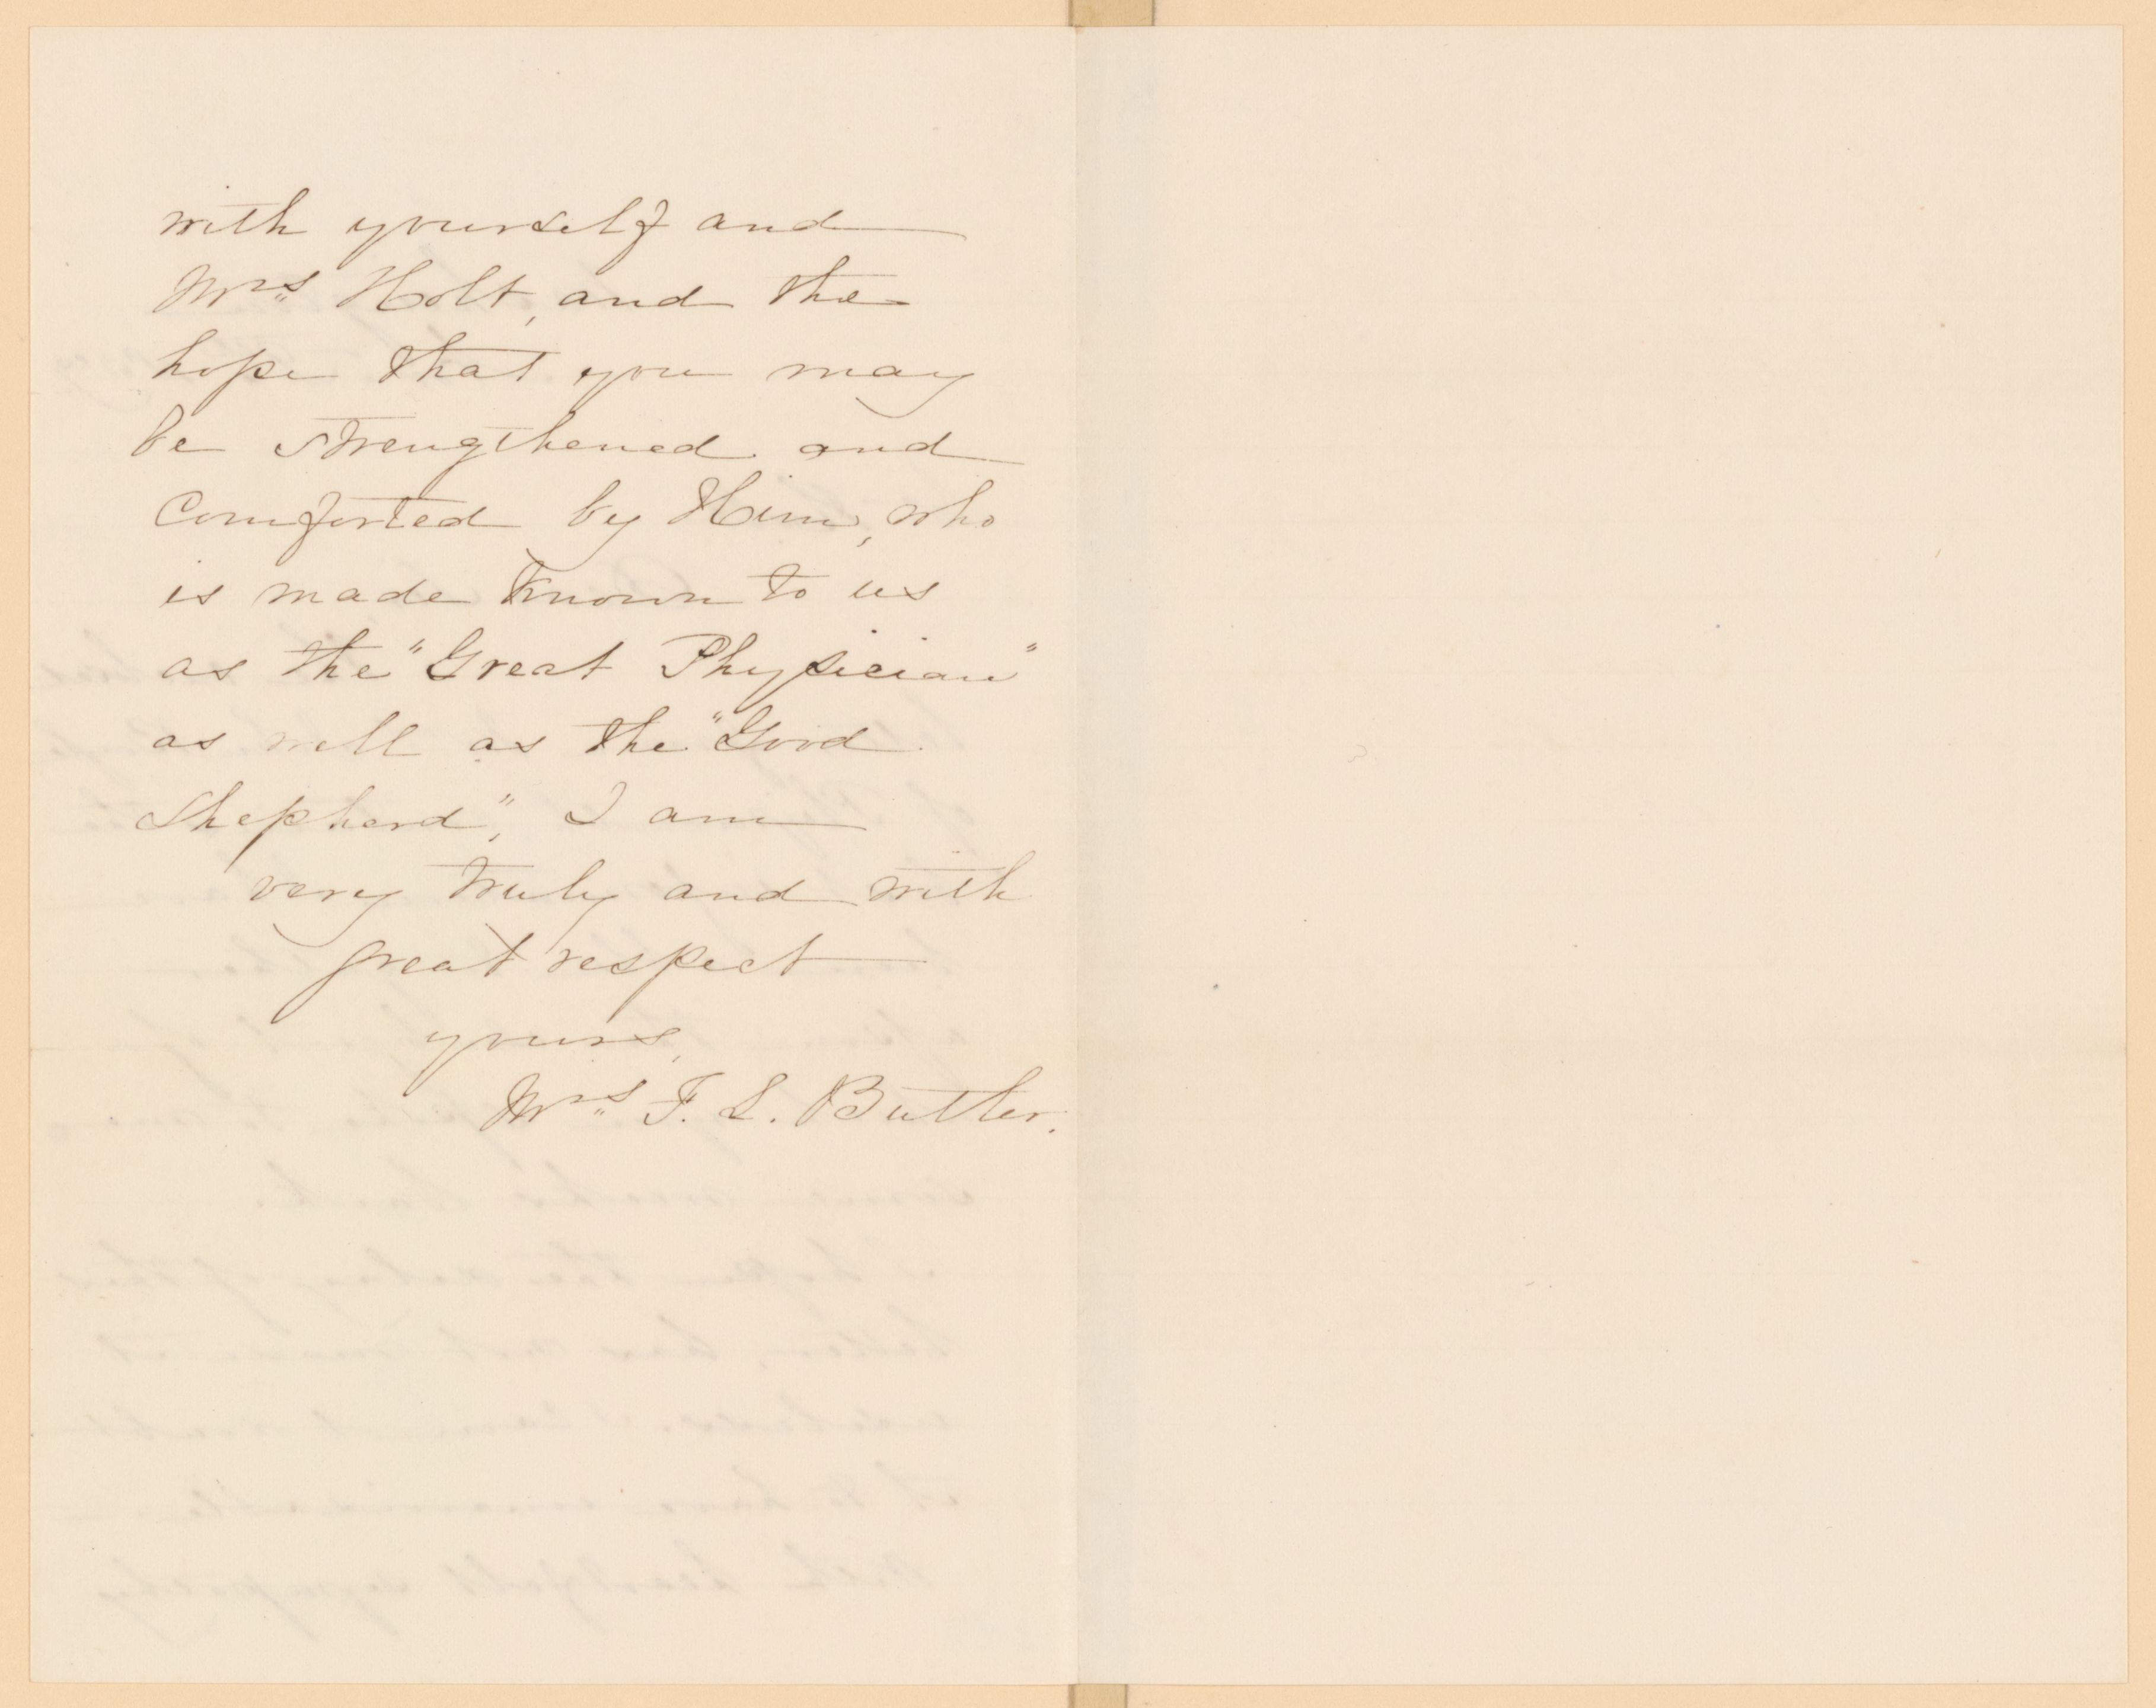 with yourself and
Mrs. Holt, and the
hope that you may
be strengthened and
Comforted by Him, who
is made known to us
as the "Great Physician"
as well as the "Good
Shepherd", I am
very truly and with
great respect
yours,
Mrs. F. L. Butler.